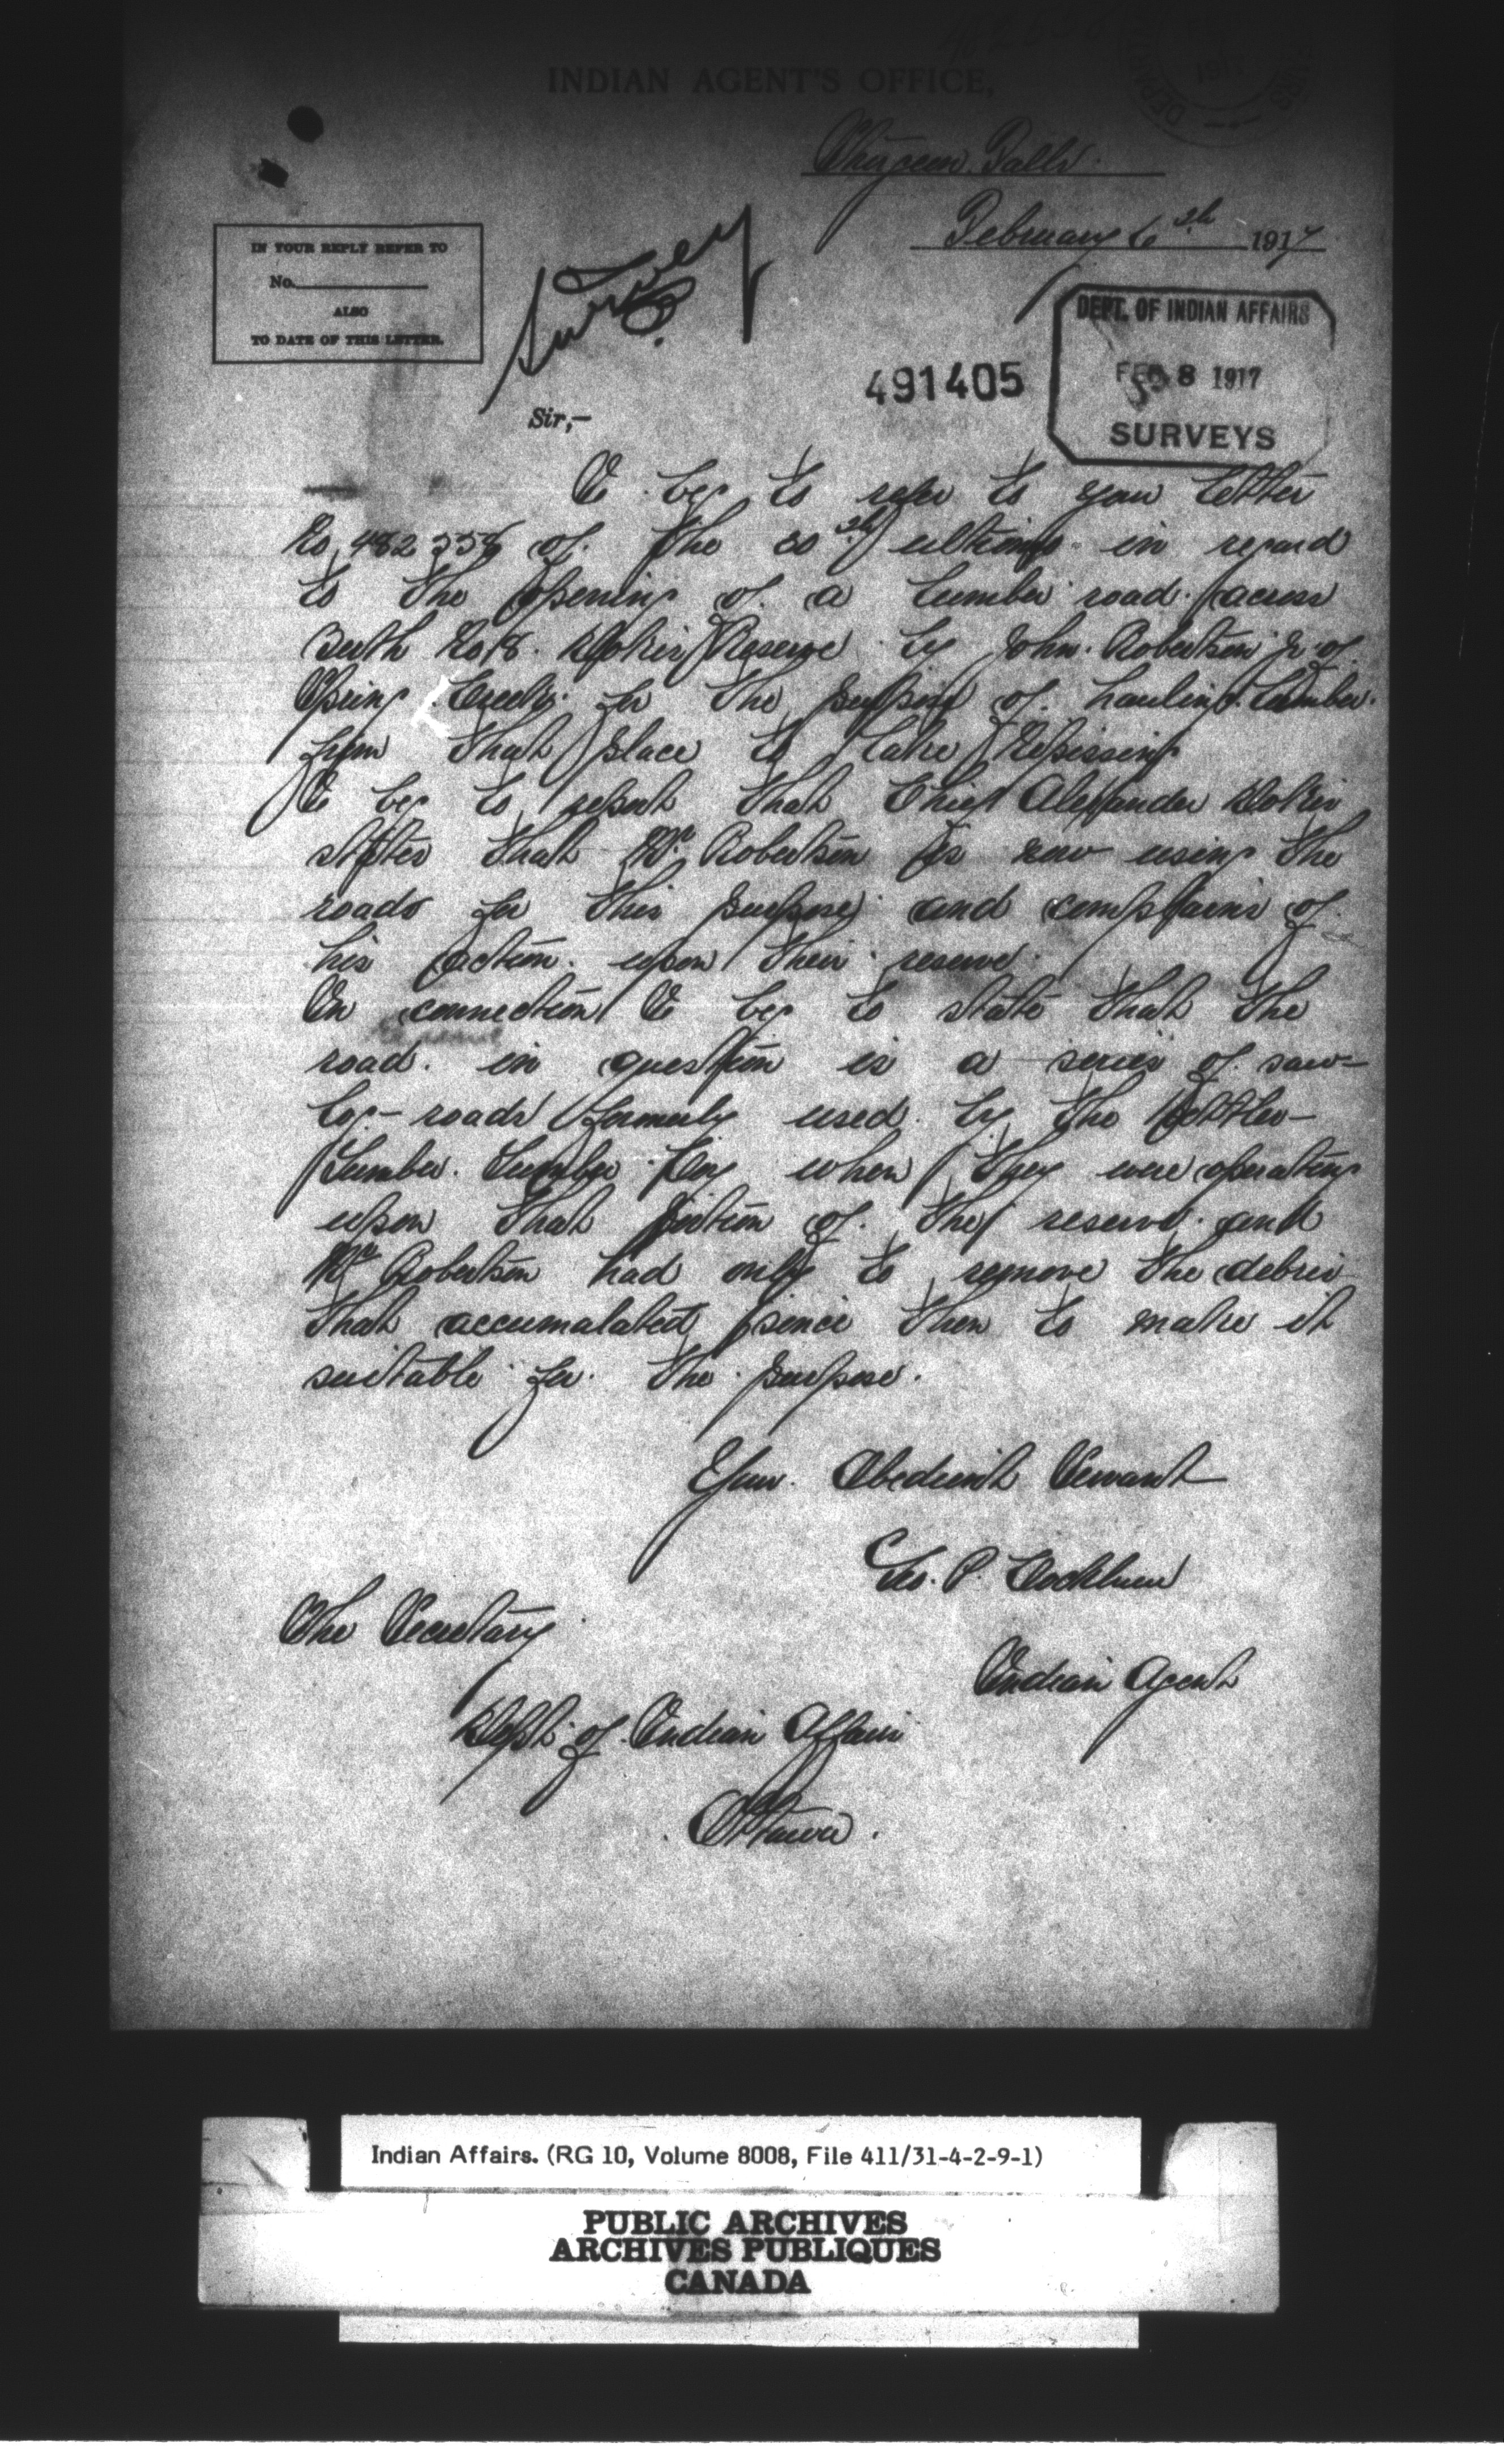 INDIAN AGENT'S OFFICE,
Sturgeon Falls.
February 6th 1917
IN YOUR REPLY REFER TO
No.
ALSO
TO DATE OF THIS LETTER.
Survey
DEPT. OF INDIAN AFFAIRS
FEB 8 1917
SURVEYS
491405
Sir,—
I beg to refer to your letter
No 482558 of the 30th ultimo in regard
to the opening of a lumber road across
Berth No 8. Dokis Reserve by John Robertson Jr of
Spring Creek for the purpose of hauling lumber
from that place to Lake Nipissing
I beg to report that Chief Alexander Dokis
states that Mr Robertson is now using the
roads for this purpose and complains of
his action upon their reserve.
In connection I beg to state that the
road in question is a series of saw-
log-roads formerly used by the
Lumber Coy when they were operating
upon that portion of the reserve and
Mr Robertson had only to remove the debris
that accumalated since then to make it
suitable for the purpose.
Your Obedient Servant
Geo. P. Cockburn
Indian Agent
The Secretary
Dept. of Indian Affairs
Ottawa.
Indian Affairs. (RG 10, Volume 8008, File 411/31-4-2-9-1)
PUBLIC ARCHIVES
ARCHIVES PUBLIQUES
CANADA